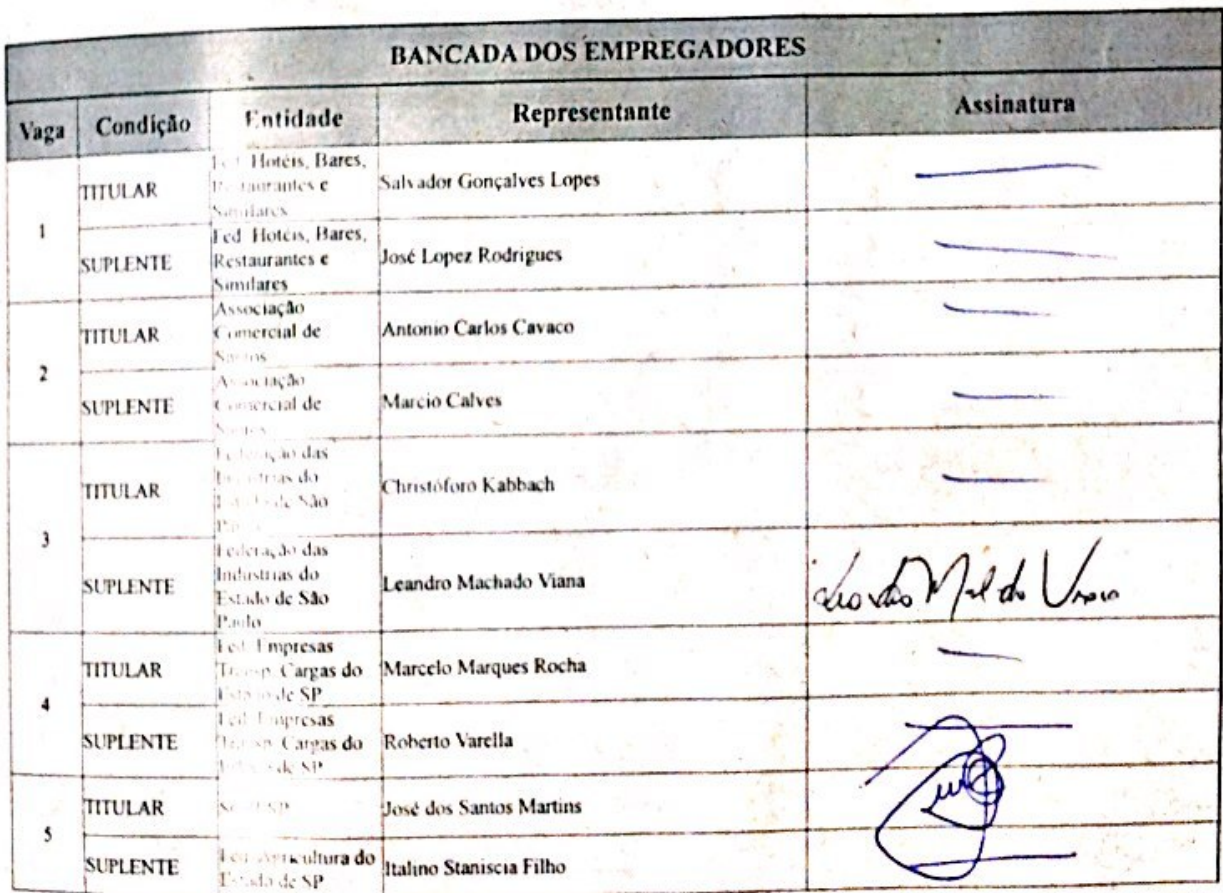 BANCADA DOS EMPREGADORES
Vaga Condição Entidade Representante Assinatura
1
TITULAR
Fed. Hotéis, Bares,
Restaurantes e
Similares
Salvador Gonçalves Lopes
SUPLENTE
Fed. Hotéis, Bares,
Restaurantes e
Similares
José Lopez Rodrigues
2
TITULAR
Associação
Comercial de
Santos
Antonio Carlos Cavaco
SUPLENTE
Associação
Comercial de
Santos
Marcio Calves
3
TITULAR
Federação das
Industrias do
Estado de São
Paulo
Christóforo Kabbach
SUPLENTE
Federação das
Industrias do
Estado de São
Paulo
Leandro Machado Viana
4
TITULAR
Fed. Empresas
Transp. Cargas do
Estado de SP
Marcelo Marques Rocha
SUPLENTE
Fed. Empresas
Transp. Cargas do
Estado de SP
Roberto Varella
5
TITULAR
José dos Santos Martins
SUPLENTE
Fed. Agricultura do
Estado de SP
Italino Staniscia Filho